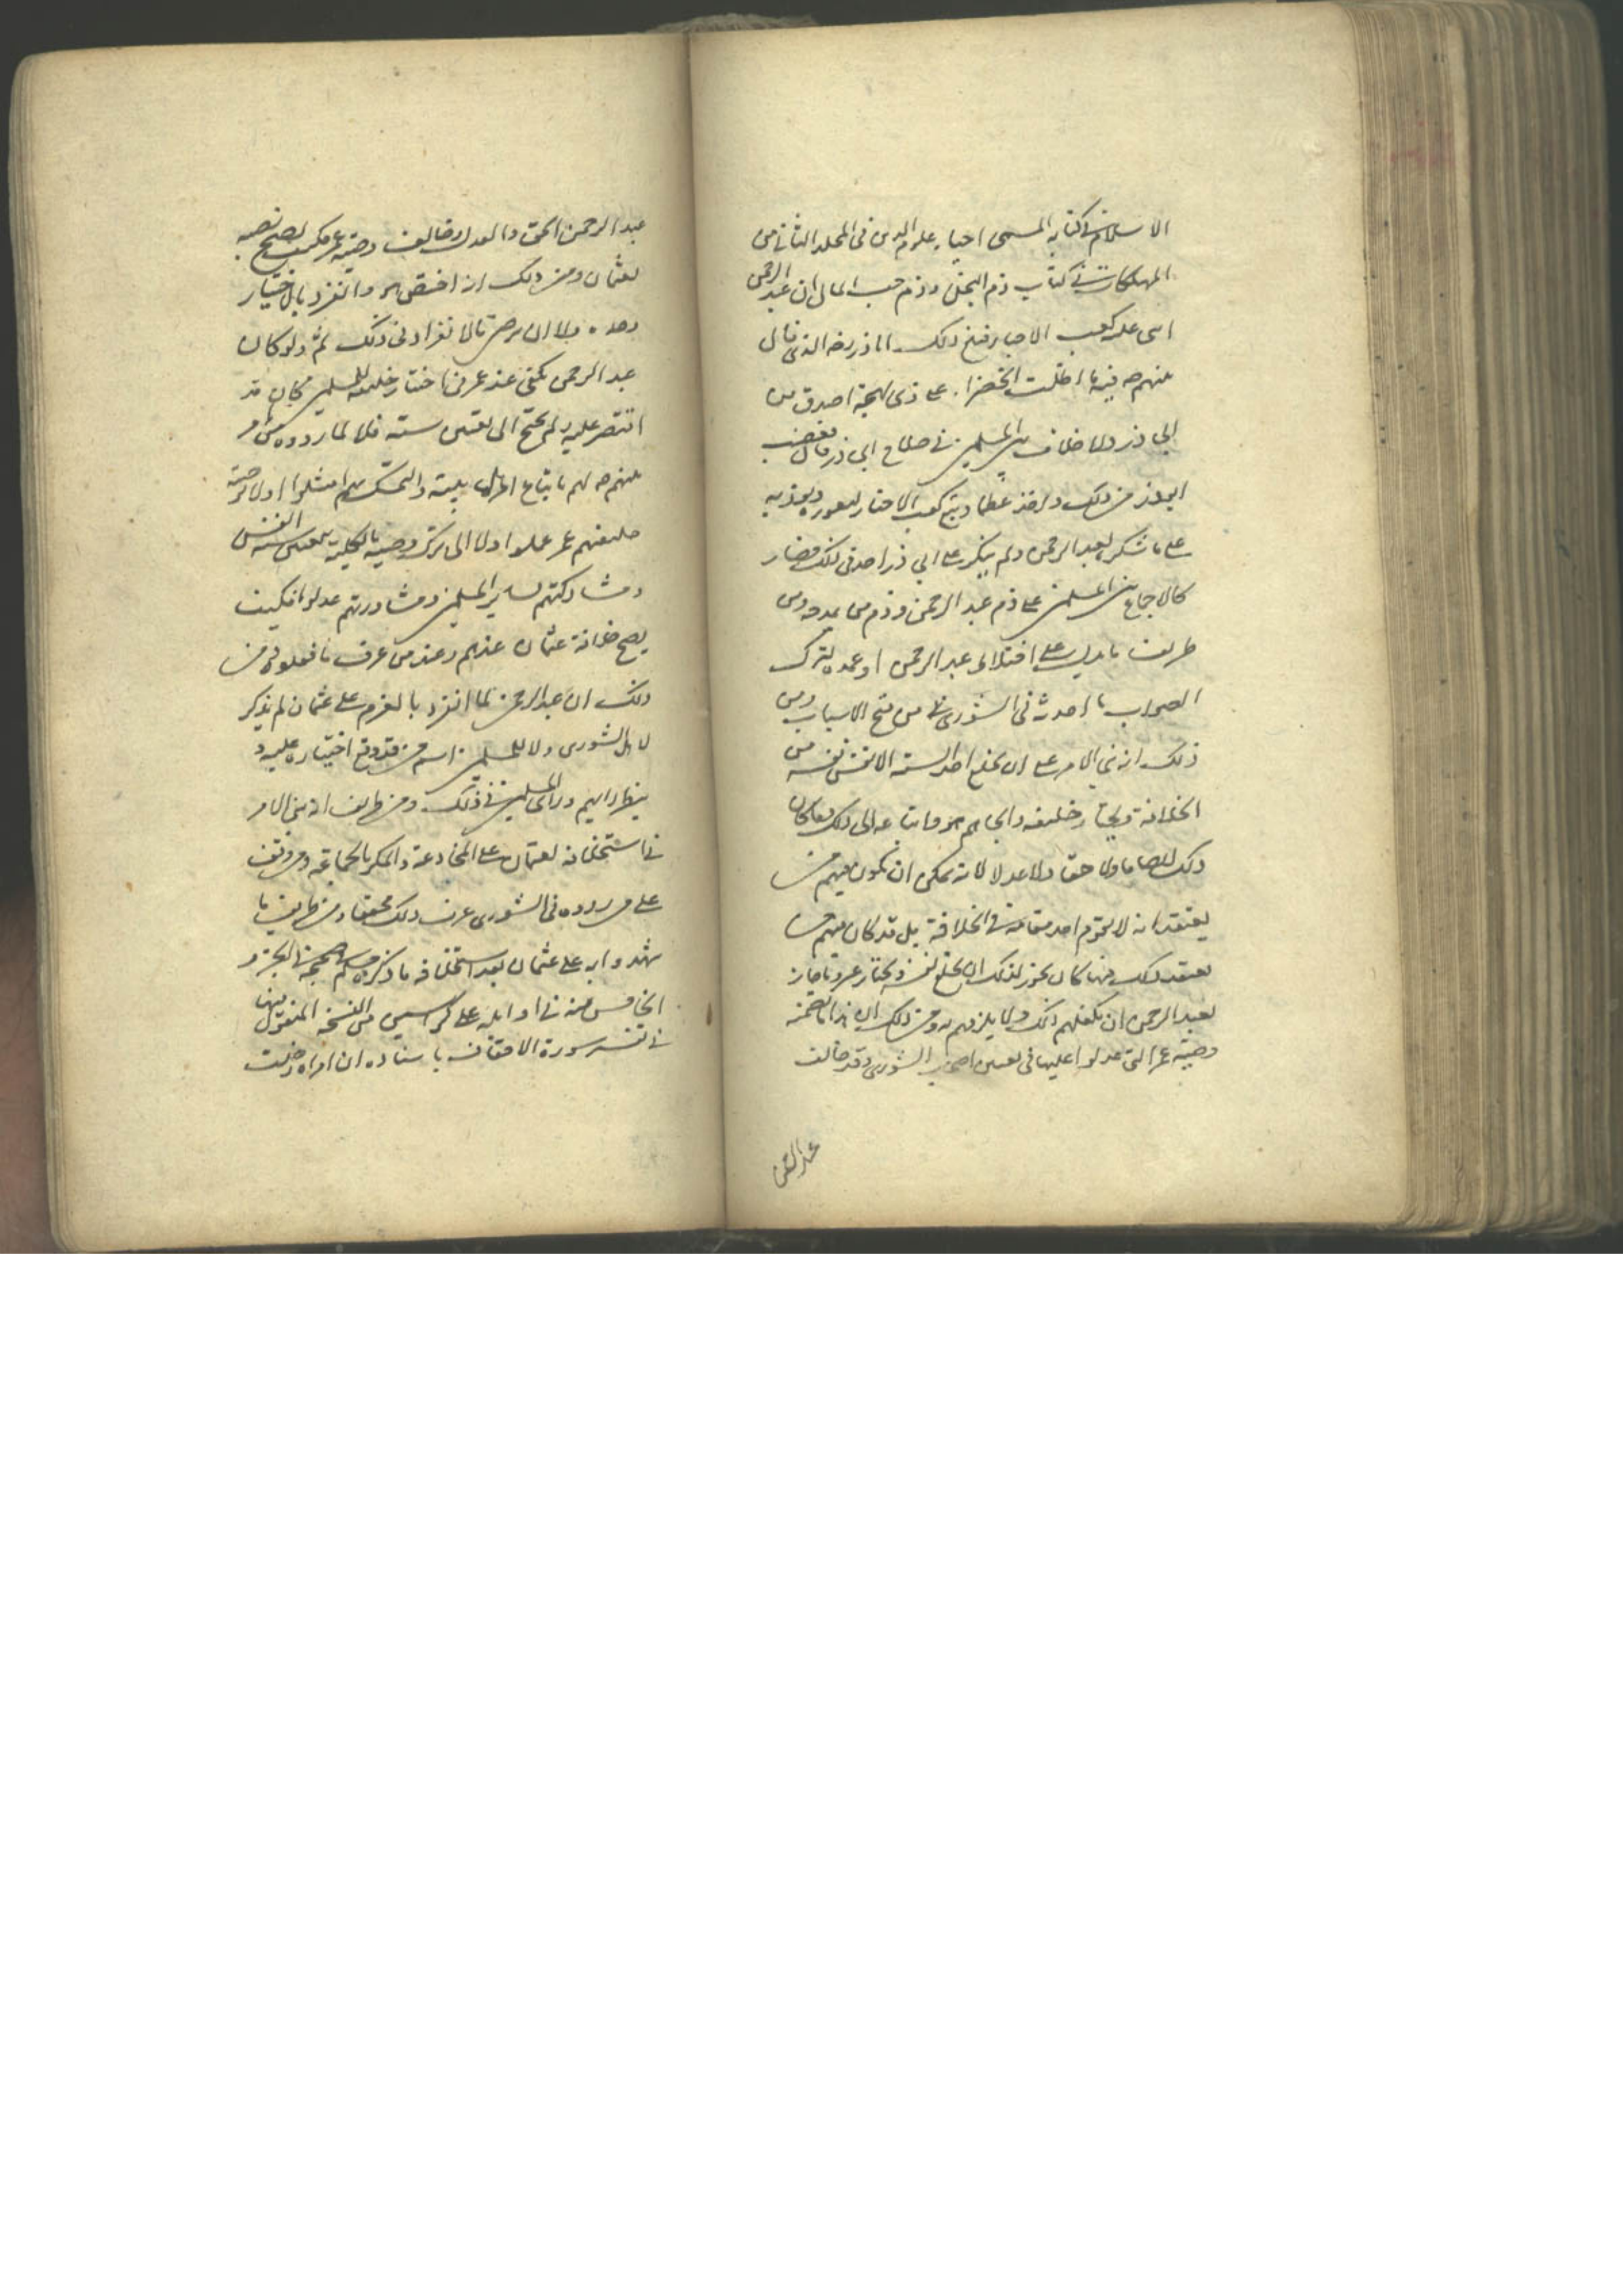 الاسلام في كتابه المسمى احياء علوم الدين في المجلد الثاني من
المهلكات في كتاب ذم البخل وذم حب المال ان عبد الرحمن
اسى عليه كعب الاحبار فبلغ ذلك ابا ذر رضه الذي قال
عنهم ص فيه ما اظلت الخضراء على ذي لهجة اصدق من
ابي ذر ولا خلاف بين المسلمين في صلاح ابي ذر قال فغضب
ابوذر من ذلك واخذ عظما ويتبع كعب الاحبار
على ما شكر لعبد الرحمن ولم ينكر على ابي ذر احد في ذلك فصار
كالاجماع من المسلمين على ذم عبد الرحمن وذم من يمدحه ومن
طريف ما يدل على اختلال عبد الرحمن او عمده لترك
الصواب ما احدثه في الشورى من فتح الاسباب ومن
ذلك انه بنى الامر على ان يخلع احد الستة الانفس نفسه من
الخلافة ويختار خليفة والجاهم هو واتباعه الى ذلك وما كان
ذلك لا صوابا ولا حقا ولا عدلا لانه يمكن ان يكون فيهم من
يعتقد انه لا يقوم احد مقامه في الخلافة بل قد كان فيهم من
يعتقد ذلك فما كان يجوز لذلك ان يخلع نفسه ويختار غيره وما جاز
لعبد الرحمن ان يكلفهم ذلك ولا يلزمهم به ومن ذلك ان هذا ما تضمنه
وصية عمر التي عدلوا عليها في تعيين اصحاب الشورى وقد خالف
عبد الرحمن
عبد الرحمن الحق والعدل وخالف وصية عمر فكيف يصح نصبه
لعثمان ومن ذلك انه اختص هو وانفرد بالاختيار
وحده ولا ان يرضى بالانفراد في ذلك ثم ولو كان
عبد الرحمن يكفي عند عمر في اختيار خليفة للمسلمين كان قد
اقتصر عليه ولم يحتج الى تعيين ستة فلا لما رووه من امر
عنهم ص لهم باتباع اهل بيته والتمسك بهم امتثلوا ولا لوصية
خليفتهم عمر عملوا ولا الى ترك وصيته بالكلية بتعيين ستة انفس
ومشاركتهم لساير المسلمين ومشاورتهم عدلوا فكيف
يصح خلافة عثمان عندهم وعند من عرف ما فعلوه ومن
ذلك ان عبد الرحمن لما انفرد بالعزم على عثمان لم يذكر
لاهل الشورى ولا للمسلمين اسم من قد وقع اختياره عليه و
ينظر رايهم وراى المسلمين في ذلك ومن طريف انه بنى الامر
في استخلافه لعثمان على المخادعة والمكر بالجماعة ومن وقف
على ما رووه في الشورى عرف ذلك محققا ومن طريف ما
شهدوا به على عثمان بعد استخلافه ما ذكره مسلم في صحيحه في الجزء
الخامس منه في اوايله على كراسين من النسخة المنقول منها
في تفسير سورة الاحقاف باسناده ان امراة دخلت